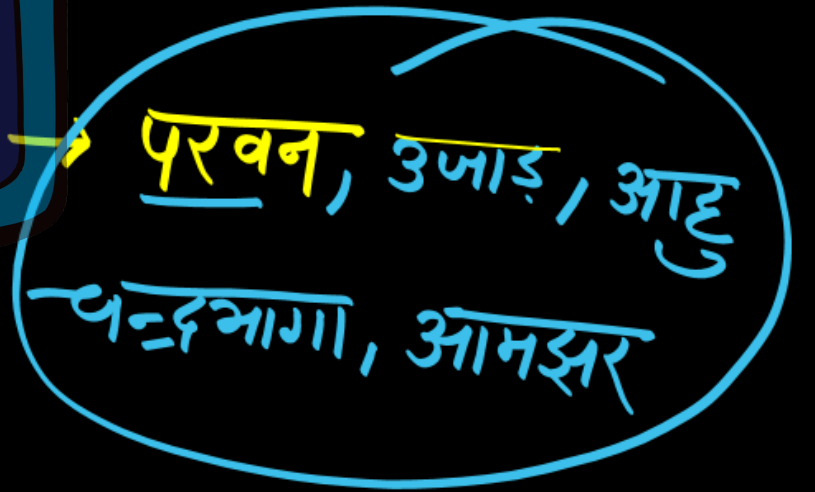 → परवन, उजाड़, आहु
-चन्द्रभागा, आमझर